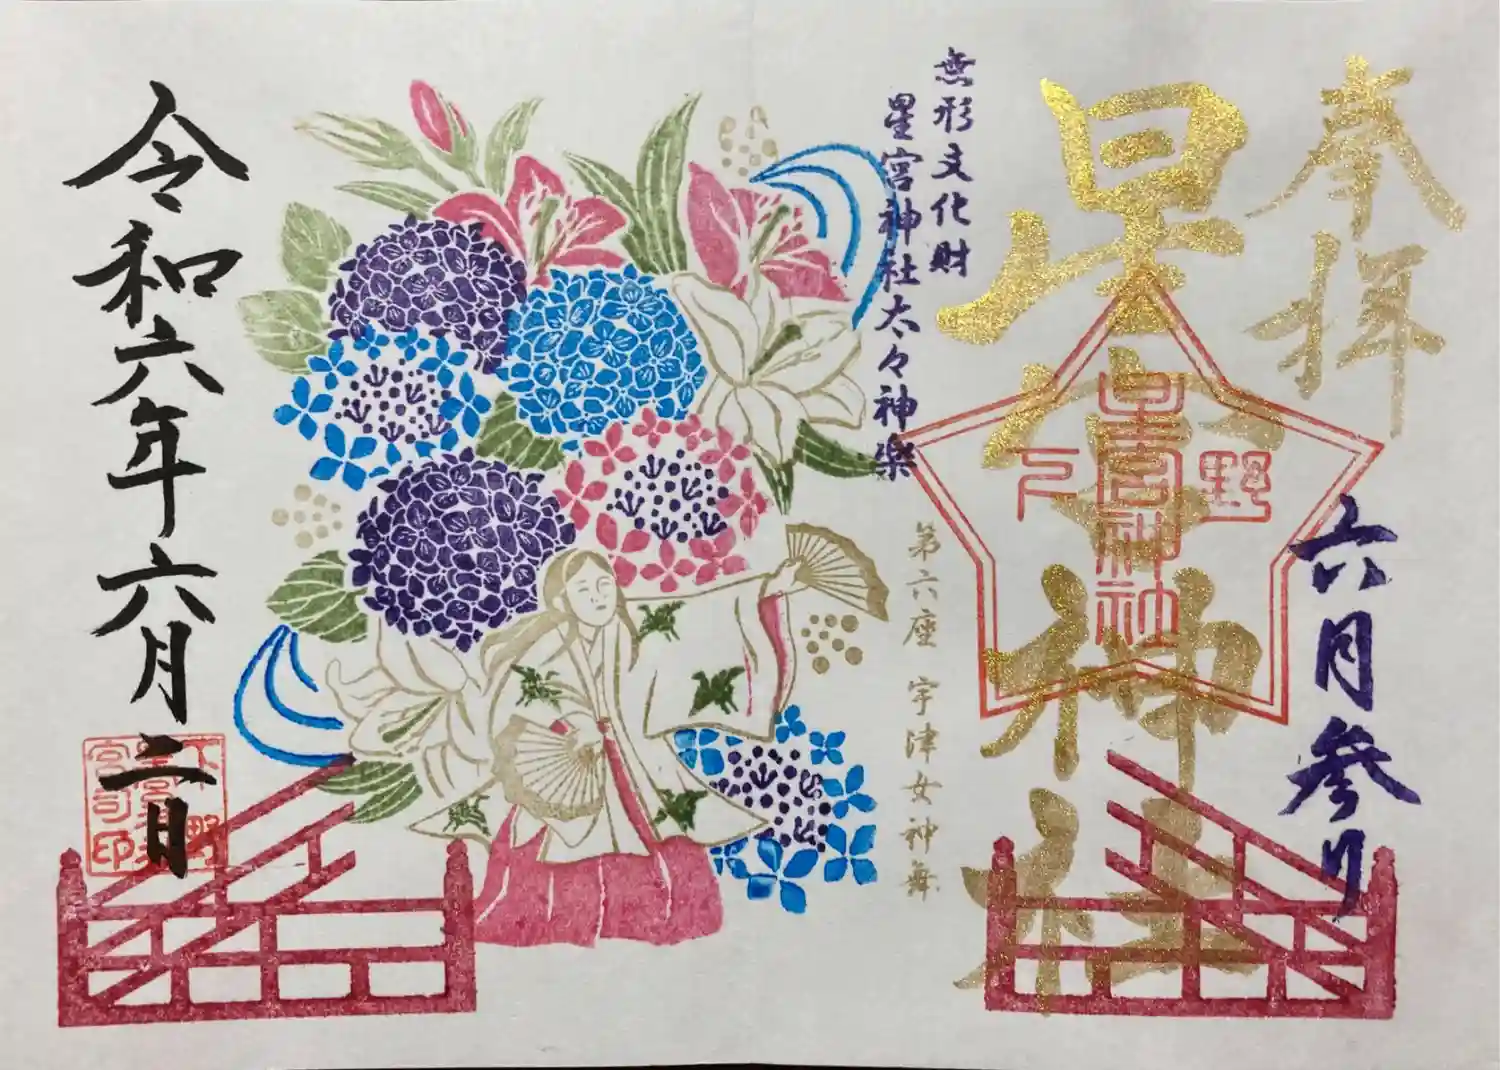 奉拝
星宮神社
下野
星宮神社
六月参り
無形文化財
星宮神社太々神楽
第六座 宇津女神舞
令和六年六月二日